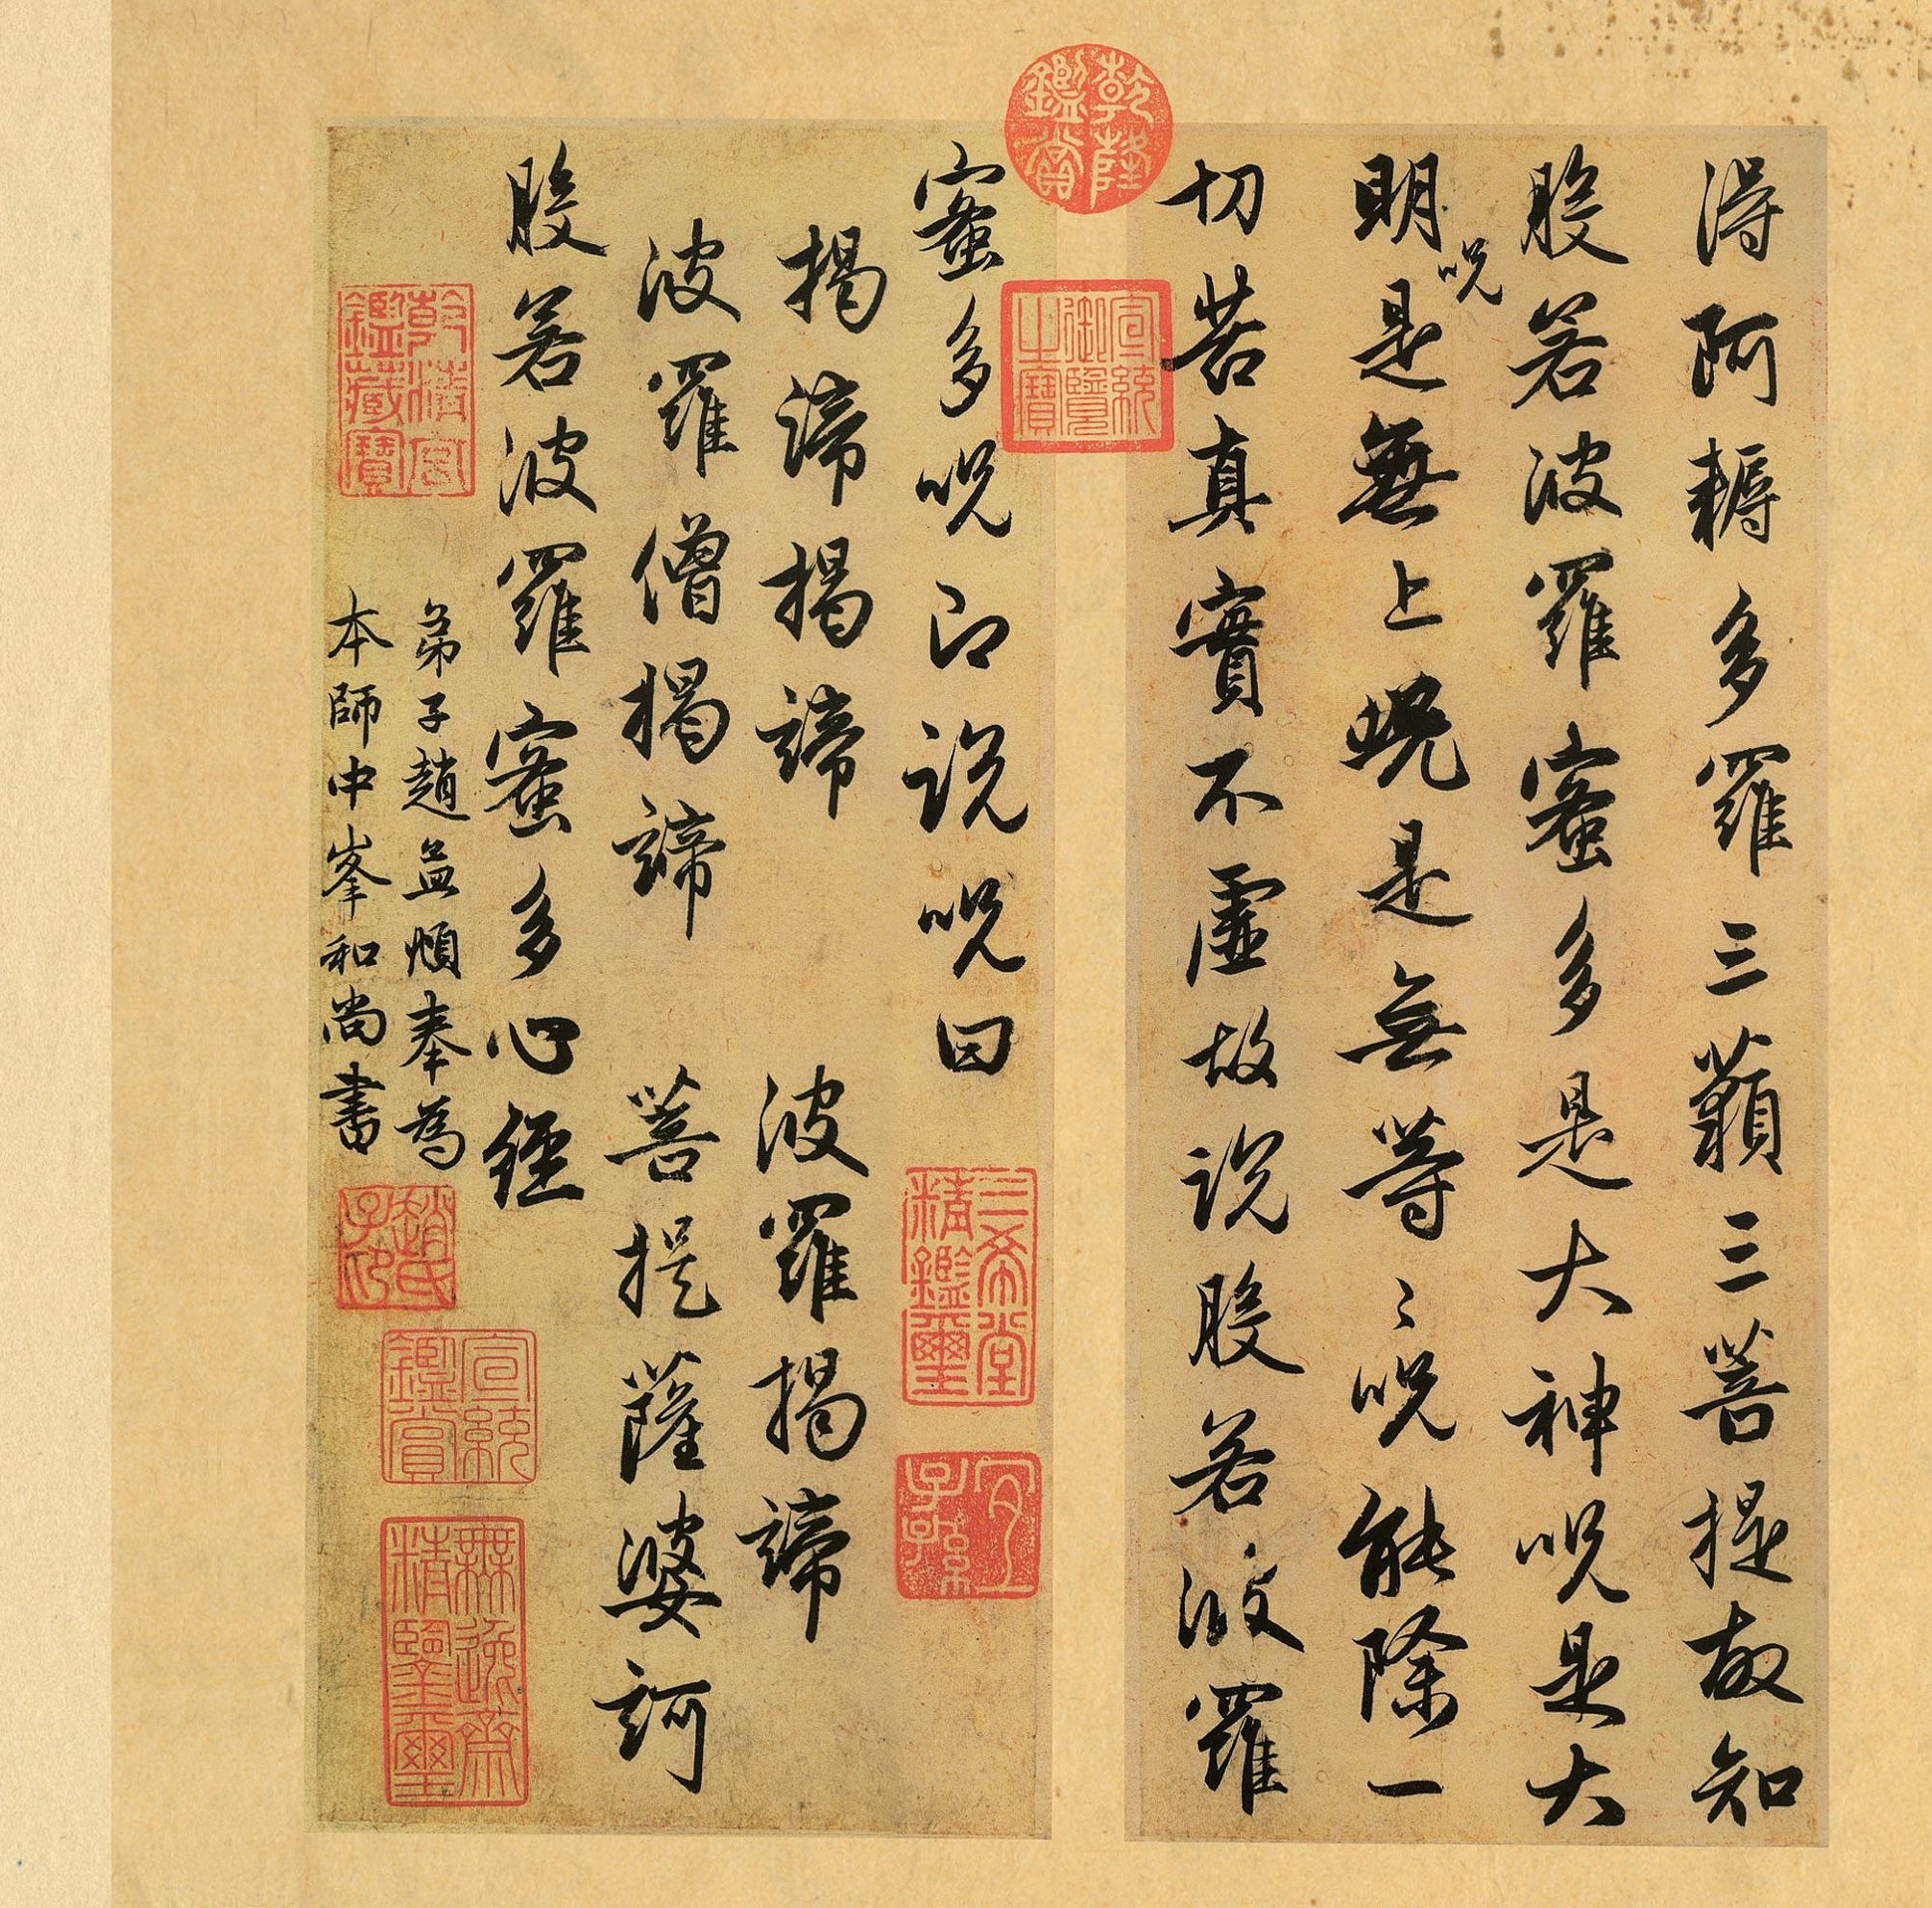 得阿耨多羅三藐三菩提故知
般若波羅蜜多是大神呪是大
明呪是無上呪是無等〻呪能除一
切苦真實不虛故説般若波羅
蜜多呪即説呪曰
揭諦揭諦 波羅揭諦
波羅僧揭諦 菩提薩婆訶
般若波羅蜜多心經
弟子趙孟頫奉為
本師中峯和尚書
乾隆鑑賞
宣統御覽之寶
三希堂精鑑璽
宜子孫
乾清宮鑑藏寶
趙氏子印
宣統鑑賞
無逸齋精鑒璽